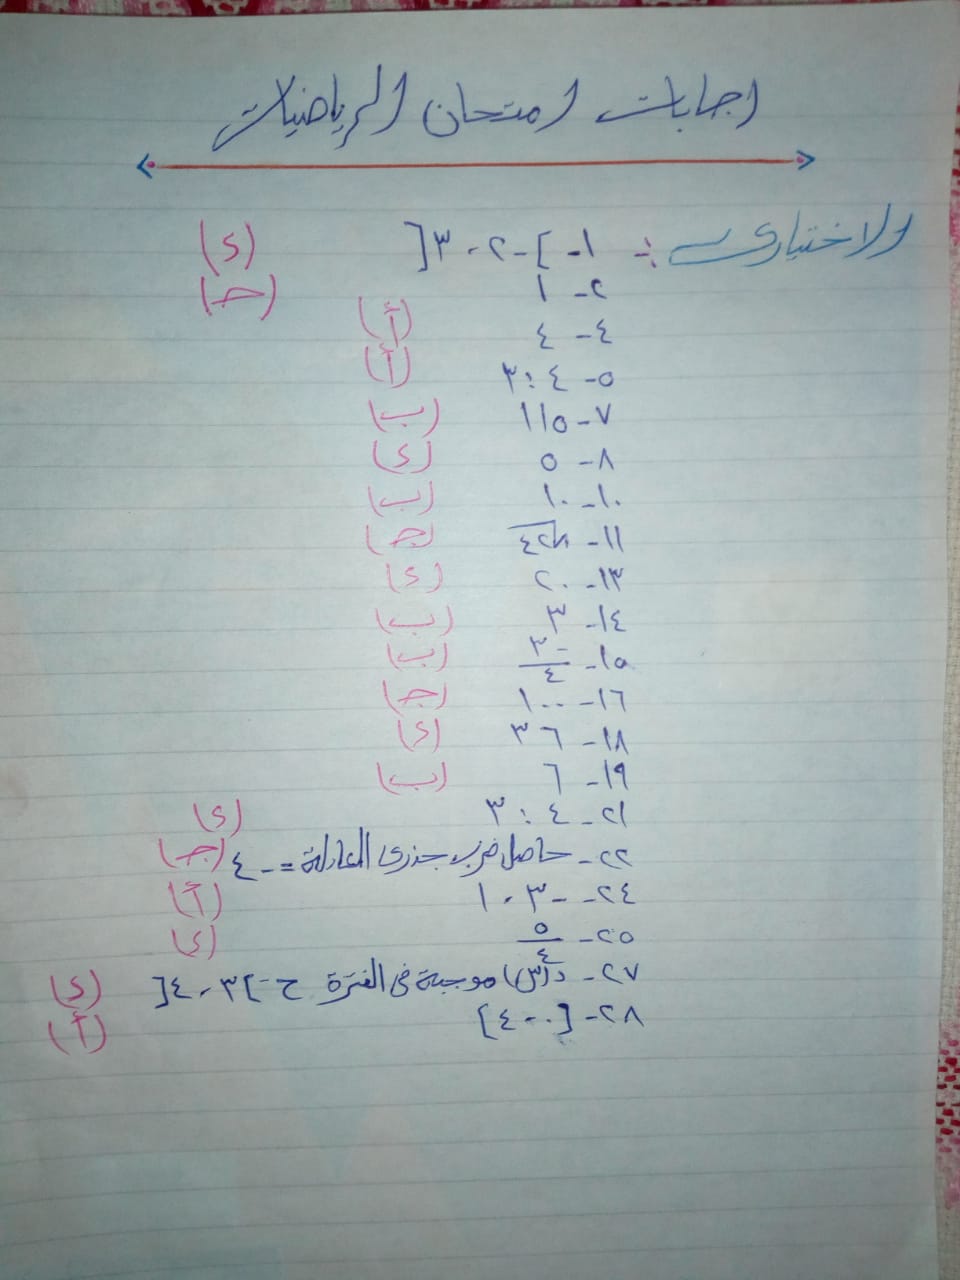 اجابات امتحان الرياضيات
الاختياري :- ١- ]-٢ ، ٣[ (د)
٢- ١ (جـ)
٤- ٤ (أ)
٥- ٤ : ٣ (أ)
٧- ١١٥ (ب)
٨- ٥ (د)
١٠- ١٠ (ب)
١١- √٢٤ (جـ)
١٣- ٢٠ (د)
١٤- ٣ (ب)
١٥- -٣/٤ (ب)
١٦- ١٠٠ (جـ)
١٨- ٣٦ (د)
١٩- ٦ (ب)
٢١- ٤ : ٣ (د)
٢٢- حاصل ضرب جذرى المعادلة = -٤ (جـ)
٢٤- -٣ ، ١ (أ)
٢٥- ٥/٤ (د)
٢٧- د(س) موجبة فى الفترة ح - ]٣ ، ٤[ (د)
٢٨- [٠ ، ٤] (أ)